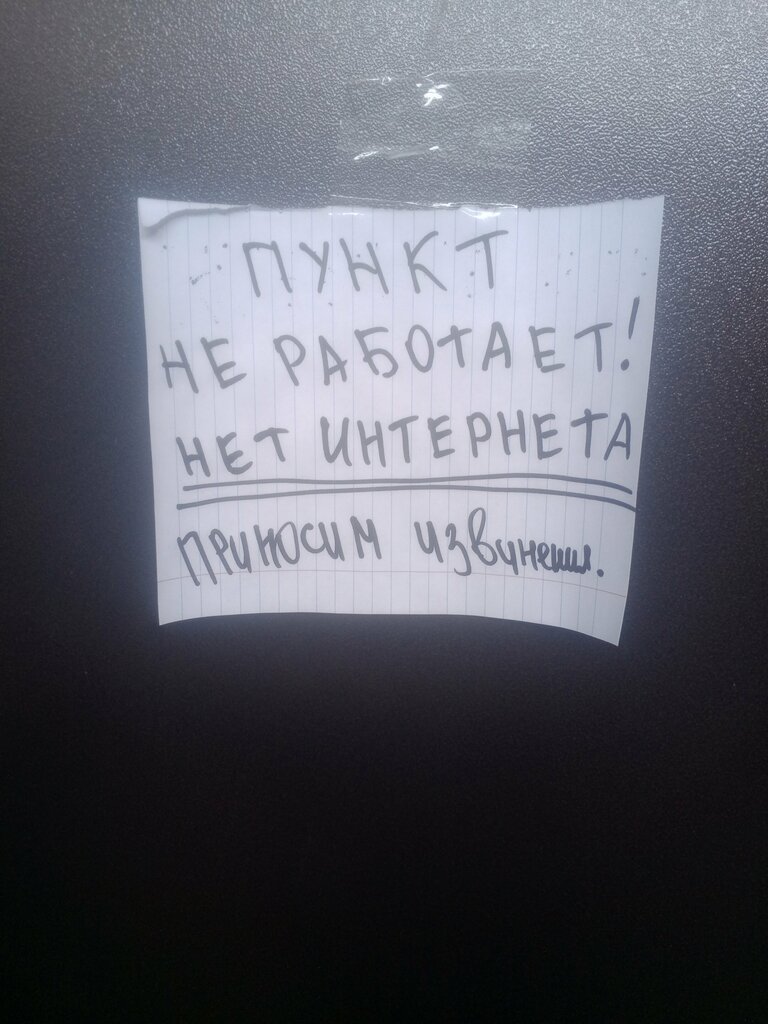 ПУНКТ
НЕ РАБОТАЕТ!
НЕТ ИНТЕРНЕТА
ПРИНОСИМ извинения.